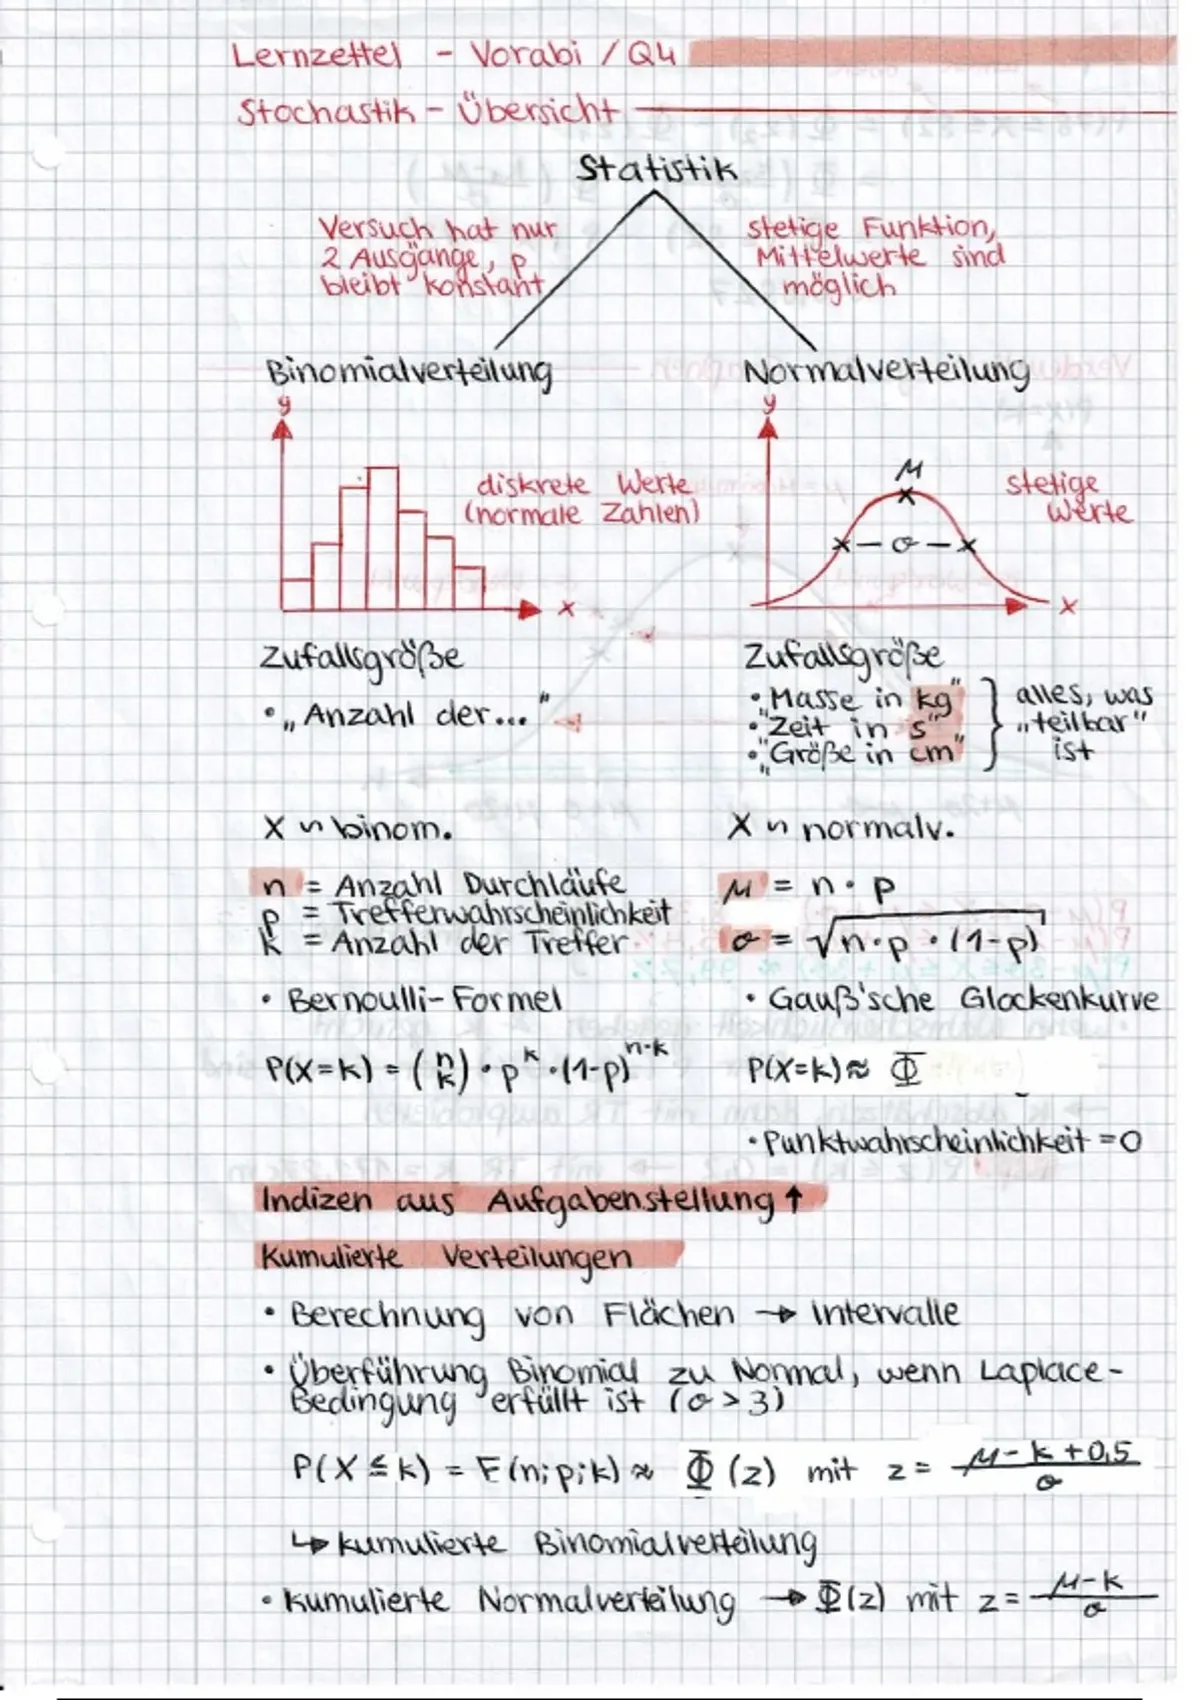 Lernzettel - Vorabi / Q4
Stochastik - Übersicht
Statistik
Versuch hat nur
2 Ausgänge, p
bleibt konstant
stetige Funktion,
Mittelwerte sind
möglich
Binomialverteilung
Normalverteilung
y
diskrete Werte
(normale Zahlen)
x
y
μ
x - σ - x
stetige
Werte
x
Zufallsgröße
• „Anzahl der..."
Zufallsgröße
• „Masse in kg"
• „Zeit in s"
• „Größe in cm"
alles, was
„teilbar"
ist
X ∽ binom.
X ∽ normalv.
n = Anzahl Durchläufe
p = Trefferwahrscheinlichkeit
k = Anzahl der Treffer
μ = n · p
σ = √n·p·(1-p)
• Bernoulli-Formel
• Gauß'sche Glockenkurve
P(X=k) = (n k) · p^k · (1-p)^n-k
P(X=k) ≈ Φ
• Punktwahrscheinlichkeit = 0
Indizen aus Aufgabenstellung ↑
Kumulierte Verteilungen
• Berechnung von Flächen → Intervalle
• Überführung Binomial zu Normal, wenn Laplace-
Bedingung erfüllt ist (σ > 3)
P(X ≤ k) = F(n; p; k) ≈ Φ (z) mit z = μ - k + 0,5 / σ
↳ kumulierte Binomialverteilung
• kumulierte Normalverteilung → Φ(z) mit z = μ-k / σ